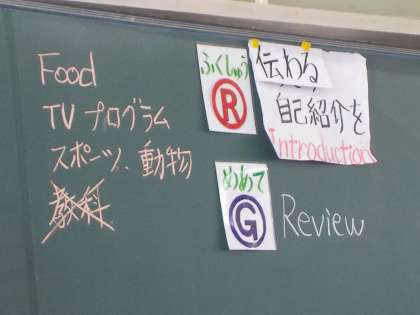 Food
TV プログラム
スポーツ、動物
教科
ふくしゅう
R
伝わる
自己紹介を
Introduction
めあて
G
Review